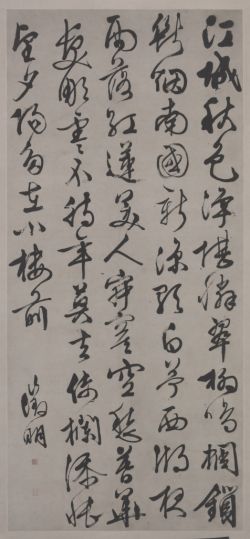 江城秋色淨堪憐翠柳鳴蜩鎖
斷烟南國新涼歌白苧西湖夜
雨落紅蓮美人寂寞空愁暮華
髮凋零不待年莫去倚欄添悵
望夕陽多在小樓前
徵明